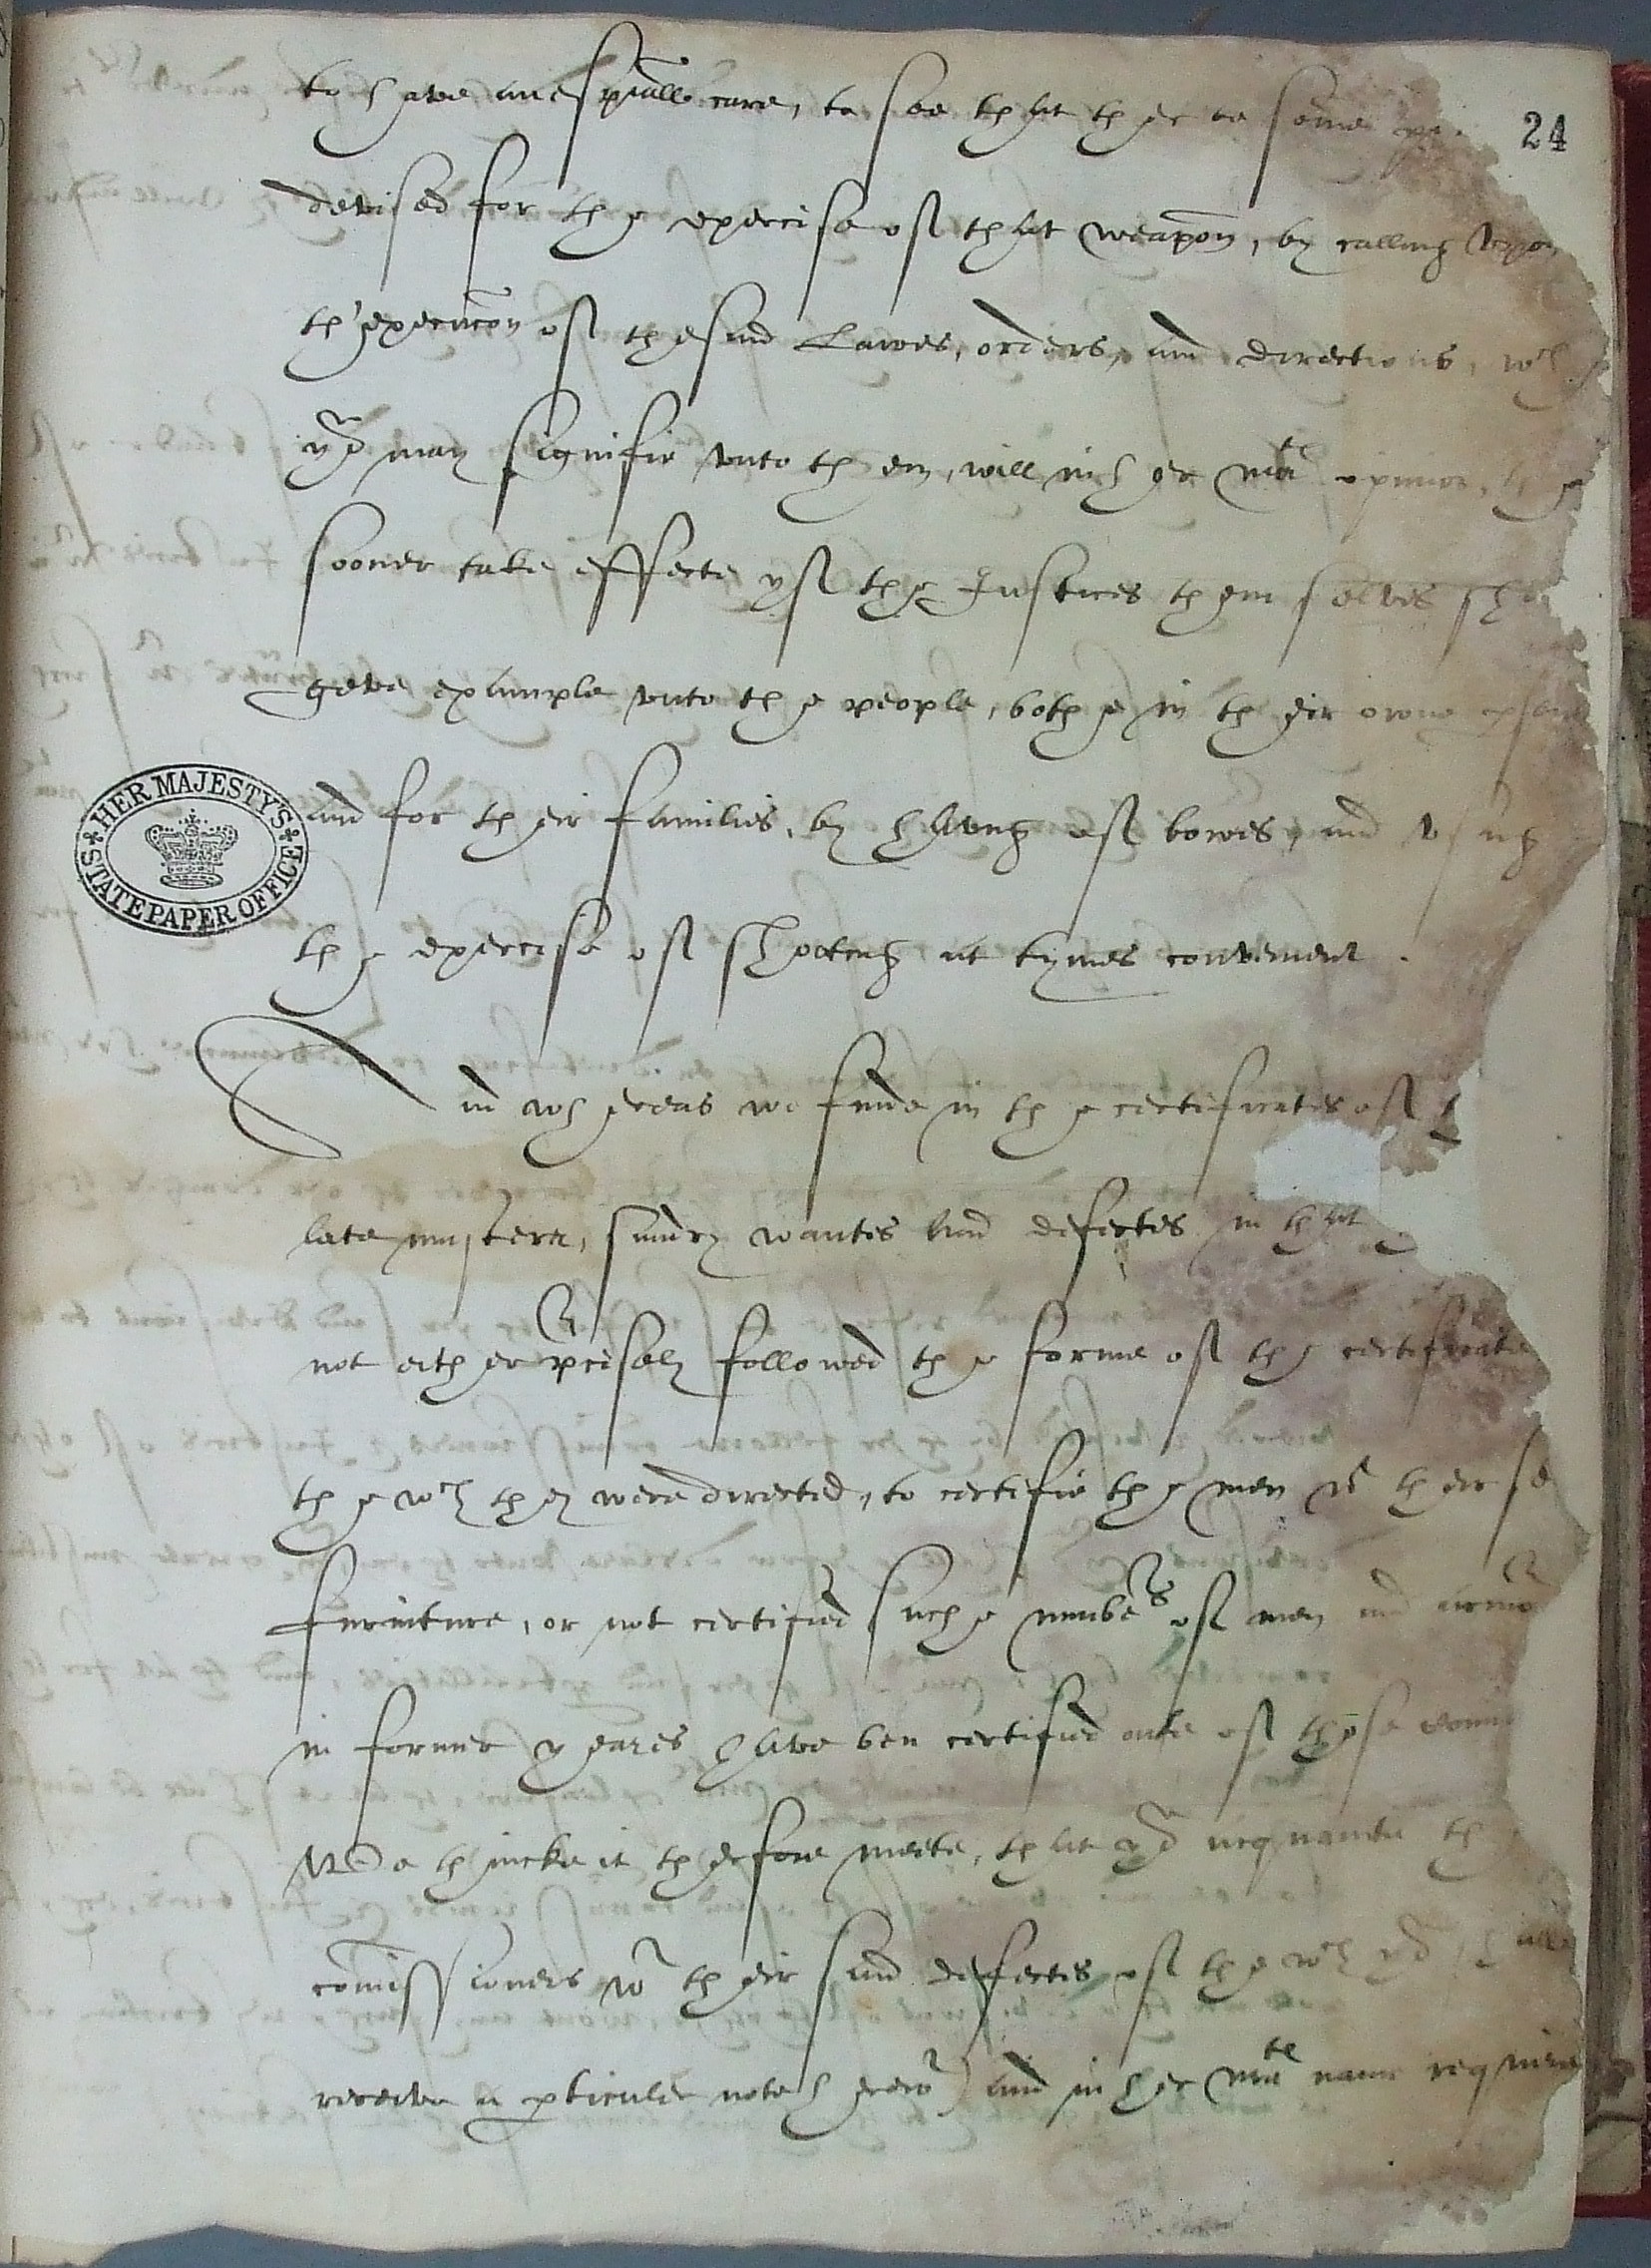 to have an espiall care, to see that ther be some
24
devised for the exercise of that weapon, by calling vpon
th'execucon of the said Lawes, orders, and directions, wch
yor L may signifie vnto them, will in her Mate opinion, the
sooner take effecte yf the Justices them selves
geve example vnto the people, bothe in their owne
and for their families, by having of bowes, and vsing
HER MAJESTY'S STATE PAPER OFFICE
the exercise of shooting at tymes convenient.
And whereas we finde in the certificates of
late musters, sundry wantes and defectes in that
not either precisely followed the forme of the certificate
the wch they were directed, to certifie the men wt their
furniture, or not certified suche numbers of men and armor
in former yeares have ben certified oute of those
We thincke it therfore meete, that yor L acquainte
comissioners wt their said defectes of the wch yor L
receive a pticuler note herewt) and in her Mate name require